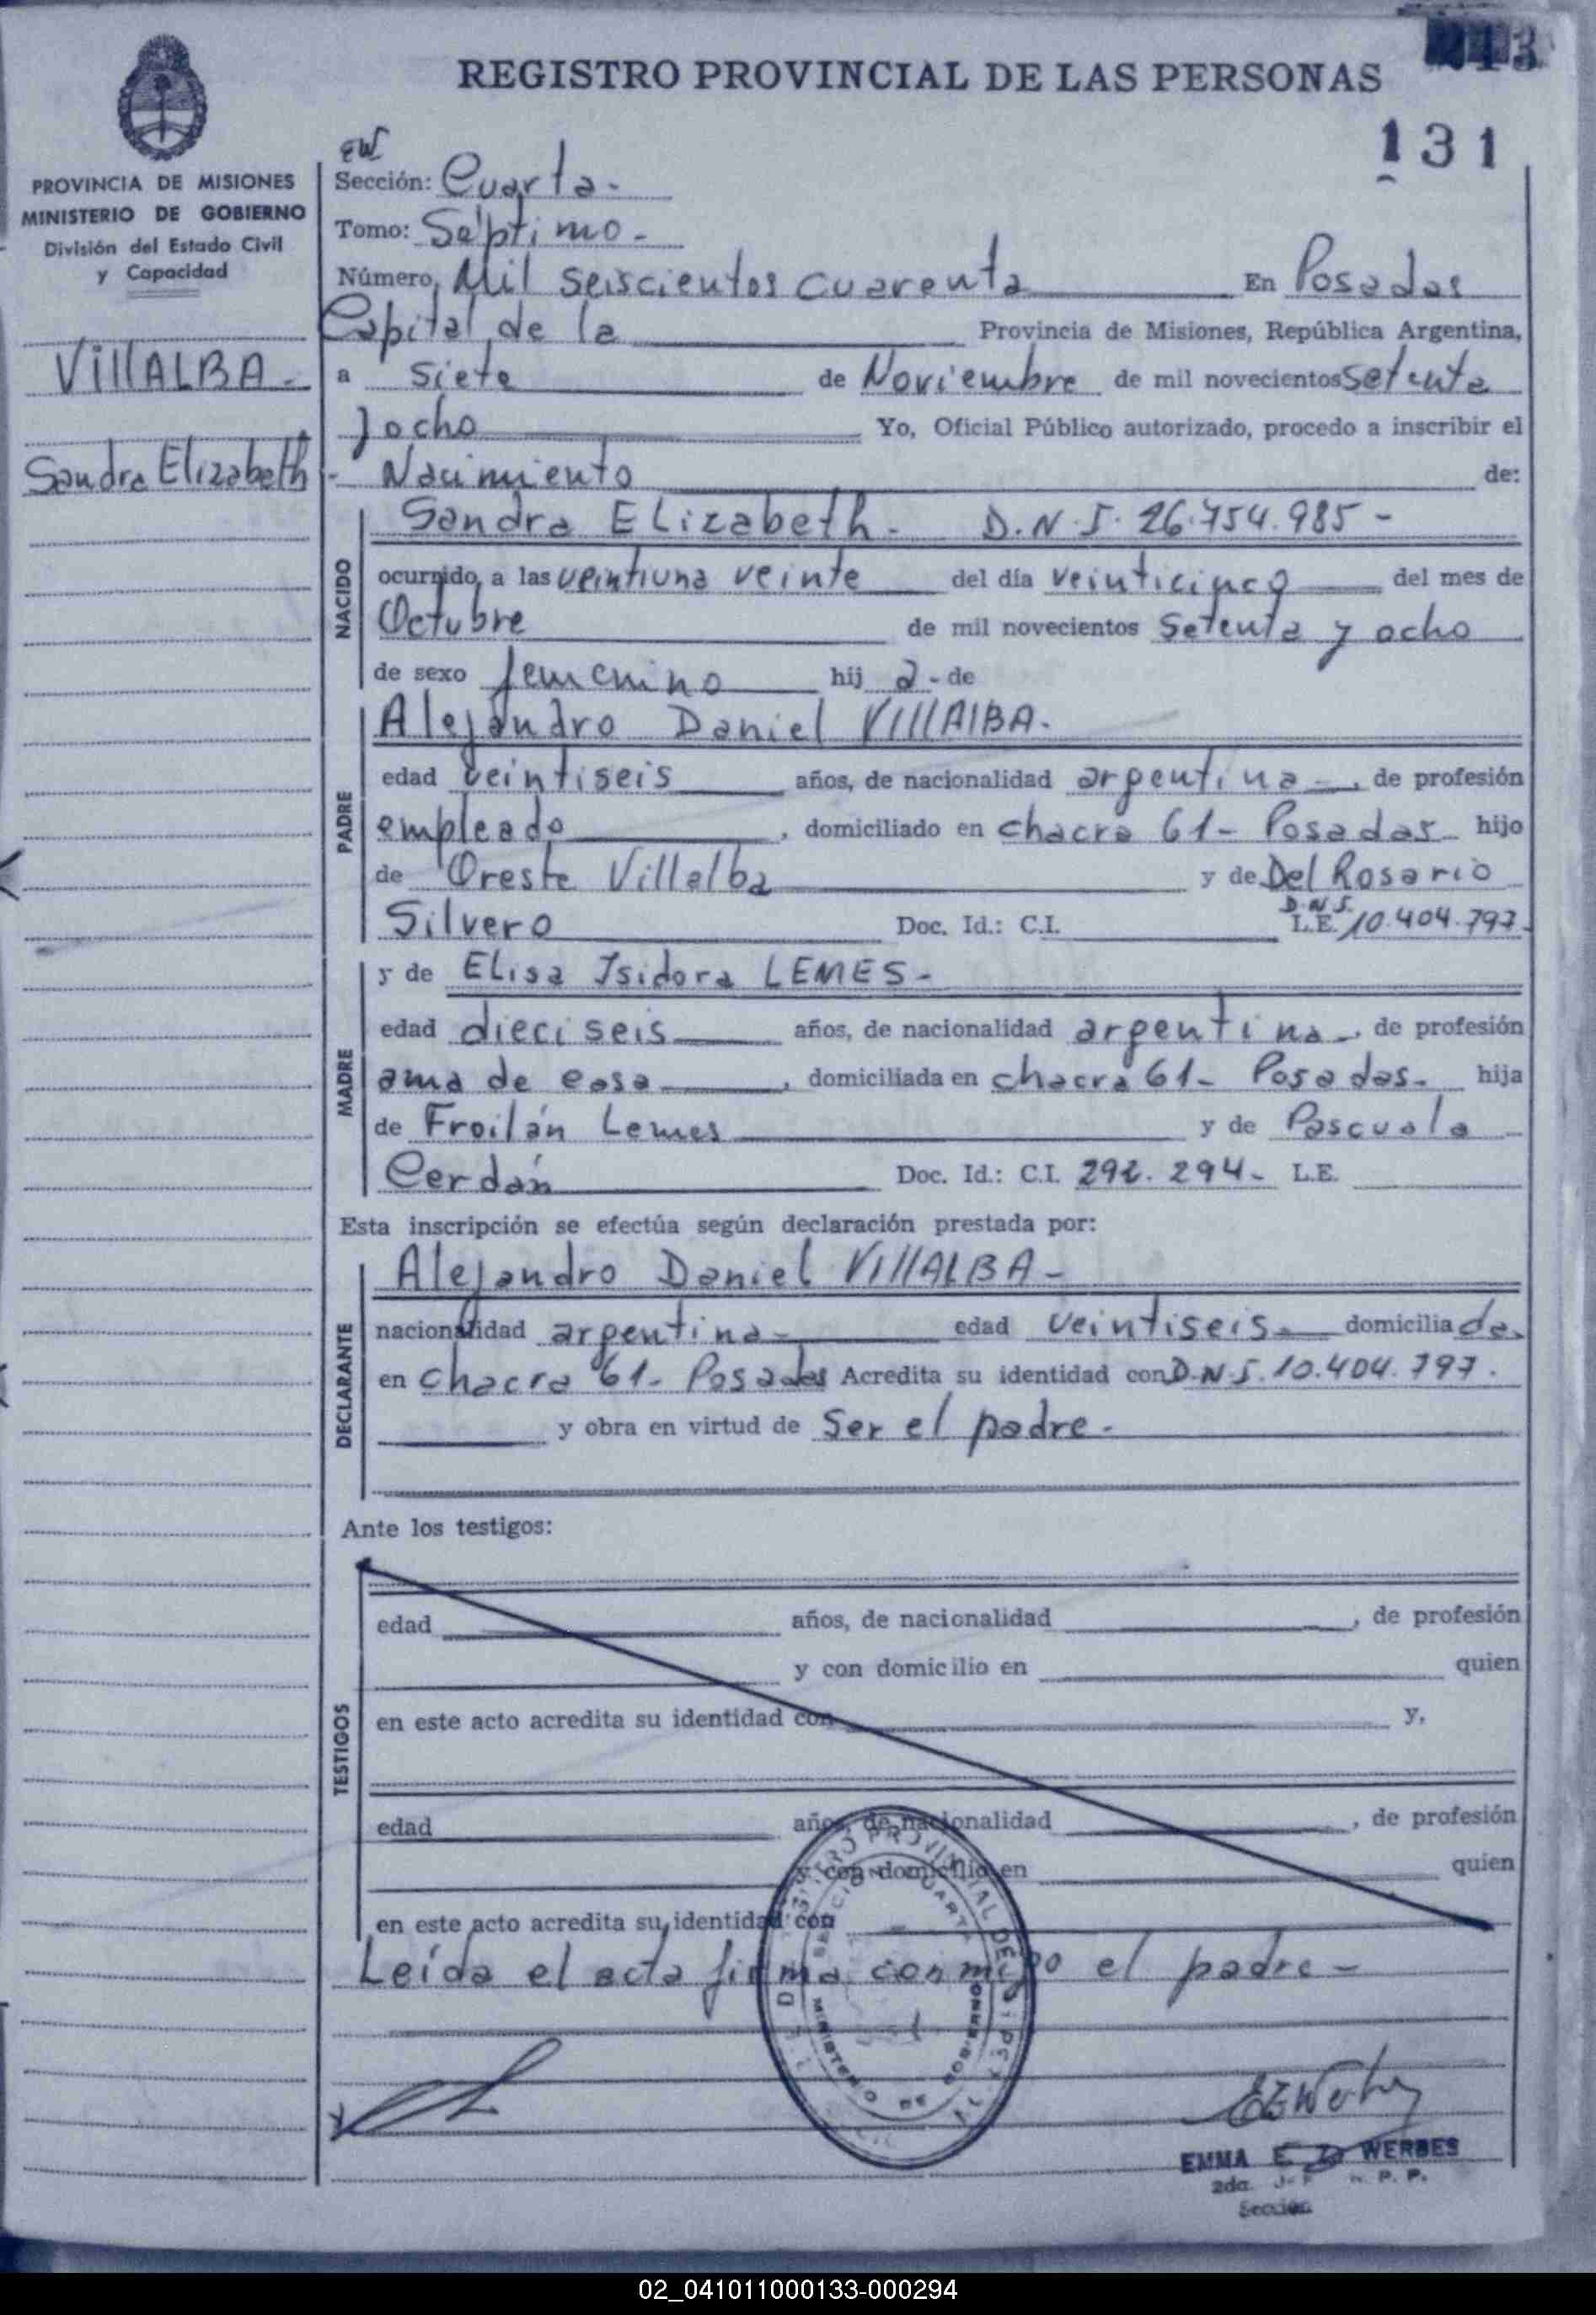 213
REGISTRO PROVINCIAL DE LAS PERSONAS
131
PROVINCIA DE MISIONES
MINISTERIO DE GOBIERNO
División del Estado Civil
y Capacidad
VillALBA -
Sandra Elizabeth
EW
Sección: Cuarta -
Tomo: Séptimo -
Número, Mil seiscientos cuarenta En Posadas
Capital de la Provincia de Misiones, República Argentina,
a siete de Noviembre de mil novecientos setenta
y ocho Yo, Oficial Público autorizado, procedo a inscribir el
- Nacimiento de:
NACIDO
Sandra ELizabeth - D.N.I. 26.754.985 -
ocurrido, a las veintiuna veinte del día veinticinco del mes de
Octubre de mil novecientos setenta y ocho
de sexo femenino hij a - de
PADRE
Alejandro Daniel VIllAlBA -
edad veintiseis años, de nacionalidad argentina -, de profesión
empleado, domiciliado en chacra 61 - Posadas hijo
de Oreste Villalba y de Del Rosario
Silvero Doc. Id.: C.I. D.N.I. L.E. 10.404.797 -
MADRE
y de ELisa Isidora LEMES -
edad dieciseis años, de nacionalidad argentina -, de profesión
ama de casa, domiciliada en chacra 61 - Posadas - hija
de Froilán Lemes y de Pascuala
Cerdán Doc. Id.: C.I. 292.294 - L.E.
Esta inscripción se efectúa según declaración prestada por:
DECLARANTE
Alejandro Daniel VIllALBA -
nacionalidad argentina - edad veintiseis - domicilia do
en chacra 61 - Posadas Acredita su identidad con D.N.I. 10.404.797.
y obra en virtud de ser el padre -
Ante los testigos:
TESTIGOS
edad años, de nacionalidad , de profesión
y con domicilio en quien
en este acto acredita su identidad con y,
edad años, de nacionalidad , de profesión
y con domicilio en quien
en este acto acredita su identidad con
Leída el acta firma conmigo el padre -
MINISTERIO DE GOBIERNO
EMMA E. WERBES
2da.
Sección
02_041011000133-000294